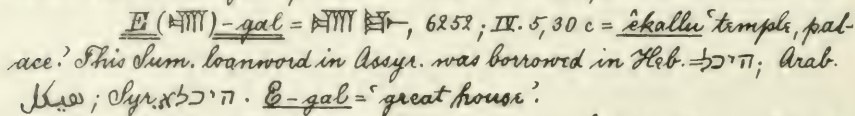 E (𒂍)-gal = 𒂍 𒃲, 6252; IV. 5, 30 c = êkallu 'temple, pal-
ace.' This Sum. loanword in Assyr. was borrowed in Heb. היכל; Arab.
هيكل; Syr. היכלא. E-gal = 'great house'.